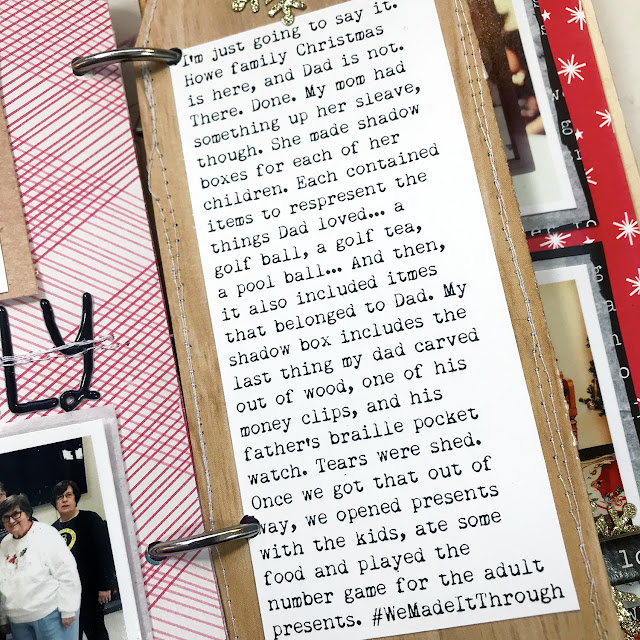 I'm just going to say it.
Howe family Christmas
is here, and Dad is not.
There. Done. My mom had
something up her sleave,
though. She made shadow
boxes for each of her
children. Each contained
items to respresent the
things Dad loved... a
golf ball, a golf tea,
a pool ball... And then,
it also included itmes
that belonged to Dad. My
shadow box includes the
last thing my dad carved
out of wood, one of his
money clips, and his
father's braille pocket
watch. Tears were shed.
Once we got that out of
way, we opened presents
with the kids, ate some
food and played the
number game for the adult
presents. #WeMadeItThrough
LY